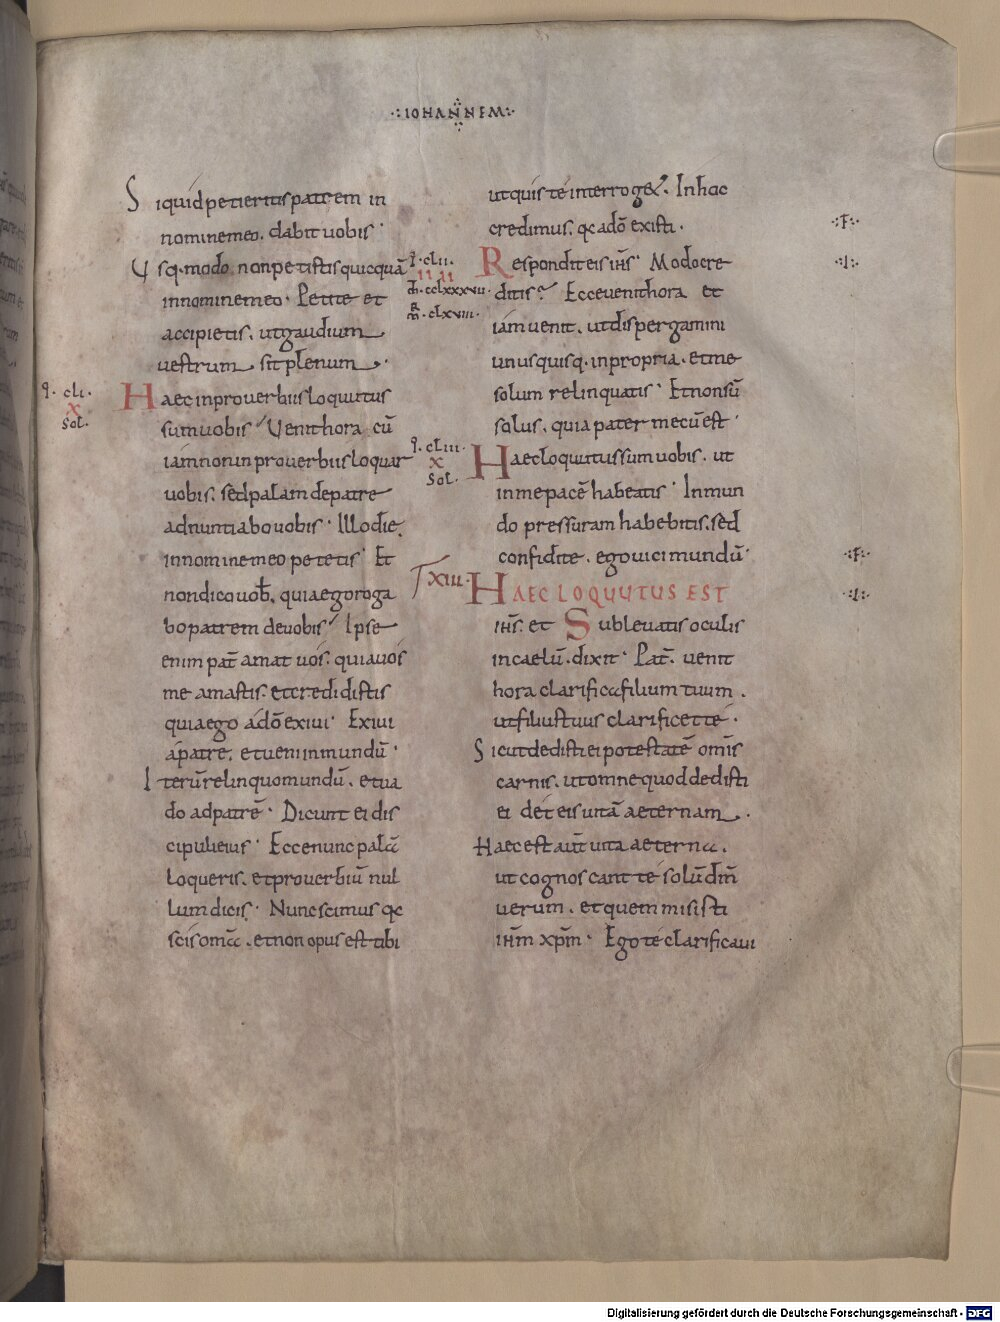 ·:IOHANNEM:·
Siquid petieritis patrem in
nomine meo. dabit uobis·
Usq· modo. non petistis quicquā
in nomine meo· Petite et
accipietis. ut gaudium
uestrum sit plenum·
q̄· cli·
x
Sol.
Haec in prouerbiis loquutus
sum uobis Uenit hora cū
iam non in prouerbiis loquar
uobis. sed palam de patre
adnuntiabo uobis· Illo die.
in nomine meo petetis· Et
non dico uob̄. quia ego roga
bo patrem de uobis Ipse
enim pat̄ amat uōs. quia uos
me amastis. et credidistis
quia ego a dō exiui· Exiui
a patre. et ueni in mundū·
Iterū relinquo mundū. et ua
do ad patrē· Dicunt ei dis
cipuli eius· Ecce nunc palā
loqueris. et prouerbiū nul
lum dicis· Nunc scimus qa
scis oma. et non opus est tibi
ut quis te interroget. In hoc
credimus. qa a dō existi·
·:F:·
·clii·
·cclxxxvii·
·clxviii·
Respondit eis ihs̄· Modo cre
·:I:·
ditis? Ecce uenit hora et
iam uenit. ut dispergamini
unusquisq· in propria· et me
solum relinquatis· Et non sū
solus. quia pater mecū est·
q̄· cliii·
x
Sol.
Haec loquutus sum uobis. ut
in me pacē habeatis· In mun
do pressuram habebitis. sed
confidite. ego uici mundū·
·:F:·
xiii·
HAEC LOQUUTUS EST
·:I:·
ihs̄. et Subleuatis oculis
in caelū. dixit· Pat̄. uenit
hora clarifica filium tuum.
ut filius tuus clarificet te·
Sicut dedisti ei potestatē om̄is
carnis. ut omne quod dedisti
ei det eis uitā aeternam·
Haec est aut̄ uita aeterna.
ut cognoscant te solū dm̄
uerum. et quem misisti
ihm̄ xpm̄· Ego te clarificaui
Digitalisierung gefördert durch die Deutsche Forschungsgemeinschaft - DFG